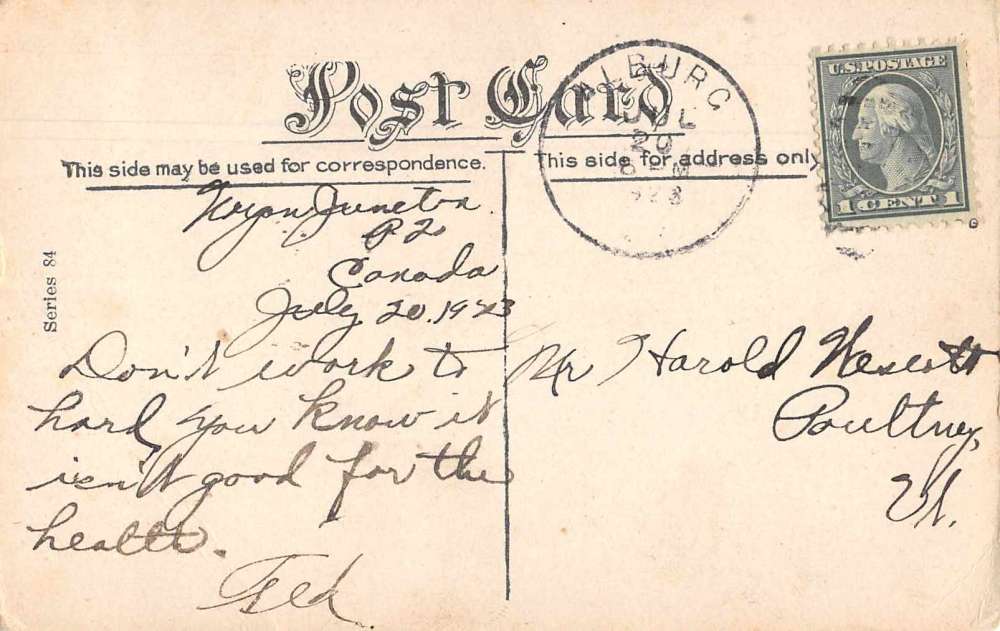 Post Card
This side may be used for correspondence.
This side for address only
ALBURG
JUL
20
8 PM
1923
U.S. POSTAGE
1 CENT 1
Series 84
Junction
Canada
July 20. 1923
Don't work to
hard, you know it
isn't good for the
health.
Ted
Mr Harold Wescott
Poultney,
Vt.